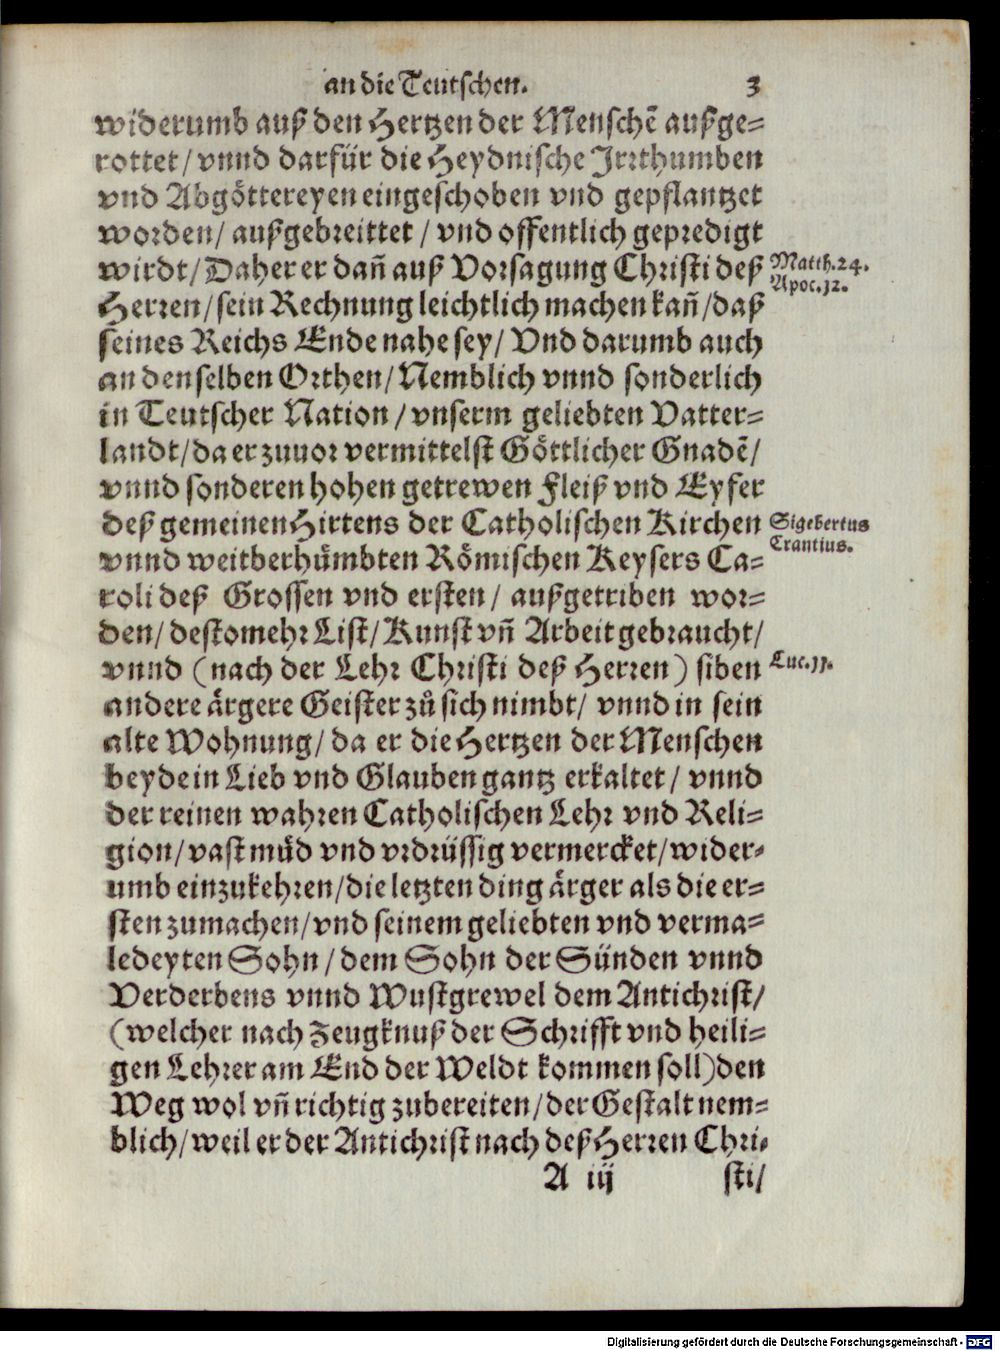 an die Teutschen. 3
widerumb auß den Hertzen der Menschẽ außge-
rottet/ vnnd darfür die Heydnische Irrthumben
vnd Abgöttereyen eingeschoben vnd gepflantzet
worden/ außgebreittet / vnd offentlich gepredigt
wirdt/ Daher er dañ auß Vorsagung Christi deß
Matth. 24.
Apoc. 12.
Herren/ sein Rechnung leichtlich machen kañ/ daß
seines Reichs Ende nahe sey/ Vnd darumb auch
an denselben Orthen/ Nemblich vnnd sonderlich
in Teutscher Nation / vnserm geliebten Vatter-
landt/ da er zuuor vermittelst Göttlicher Gnadẽ/
vnnd sonderen hohen getrewen Fleiß vnd Eyfer
deß gemeinen Hirtens der Catholischen Kirchen
Sigebertus
Crantius.
vnnd weitberhůmbten Römischen Keysers Ca-
roli deß Grossen vnd ersten/ außgetriben wor-
den/ destomehr List/ Kunst vñ Arbeit gebraucht/
vnnd (nach der Lehr Christi deß Herren) siben
Luc. 11.
andere ärgere Geister zů sich nimbt/ vnnd in sein
alte Wohnung/ da er die Hertzen der Menschen
beyde in Lieb vnd Glauben gantz erkaltet/ vnnd
der reinen wahren Catholischen Lehr vnd Reli-
gion/ vast můd vnd vrdrüssig vermercket/ wider-
umb einzukehren/ die letzten ding ärger als die er-
sten zumachen/ vnd seinem geliebten vnd verma-
ledeyten Sohn / dem Sohn der Sünden vnnd
Verderbens vnnd Wustgrewel dem Antichrist/
(welcher nach Zeugknuß der Schrifft vnd heili-
gen Lehrer am End der Weldt kommen soll) den
Weg wol vñ richtig zubereiten/ der Gestalt nem-
blich/ weil er der Antichrist nach deß Herren Chri-
A iij sti/
Digitalisierung gefördert durch die Deutsche Forschungsgemeinschaft - DFG